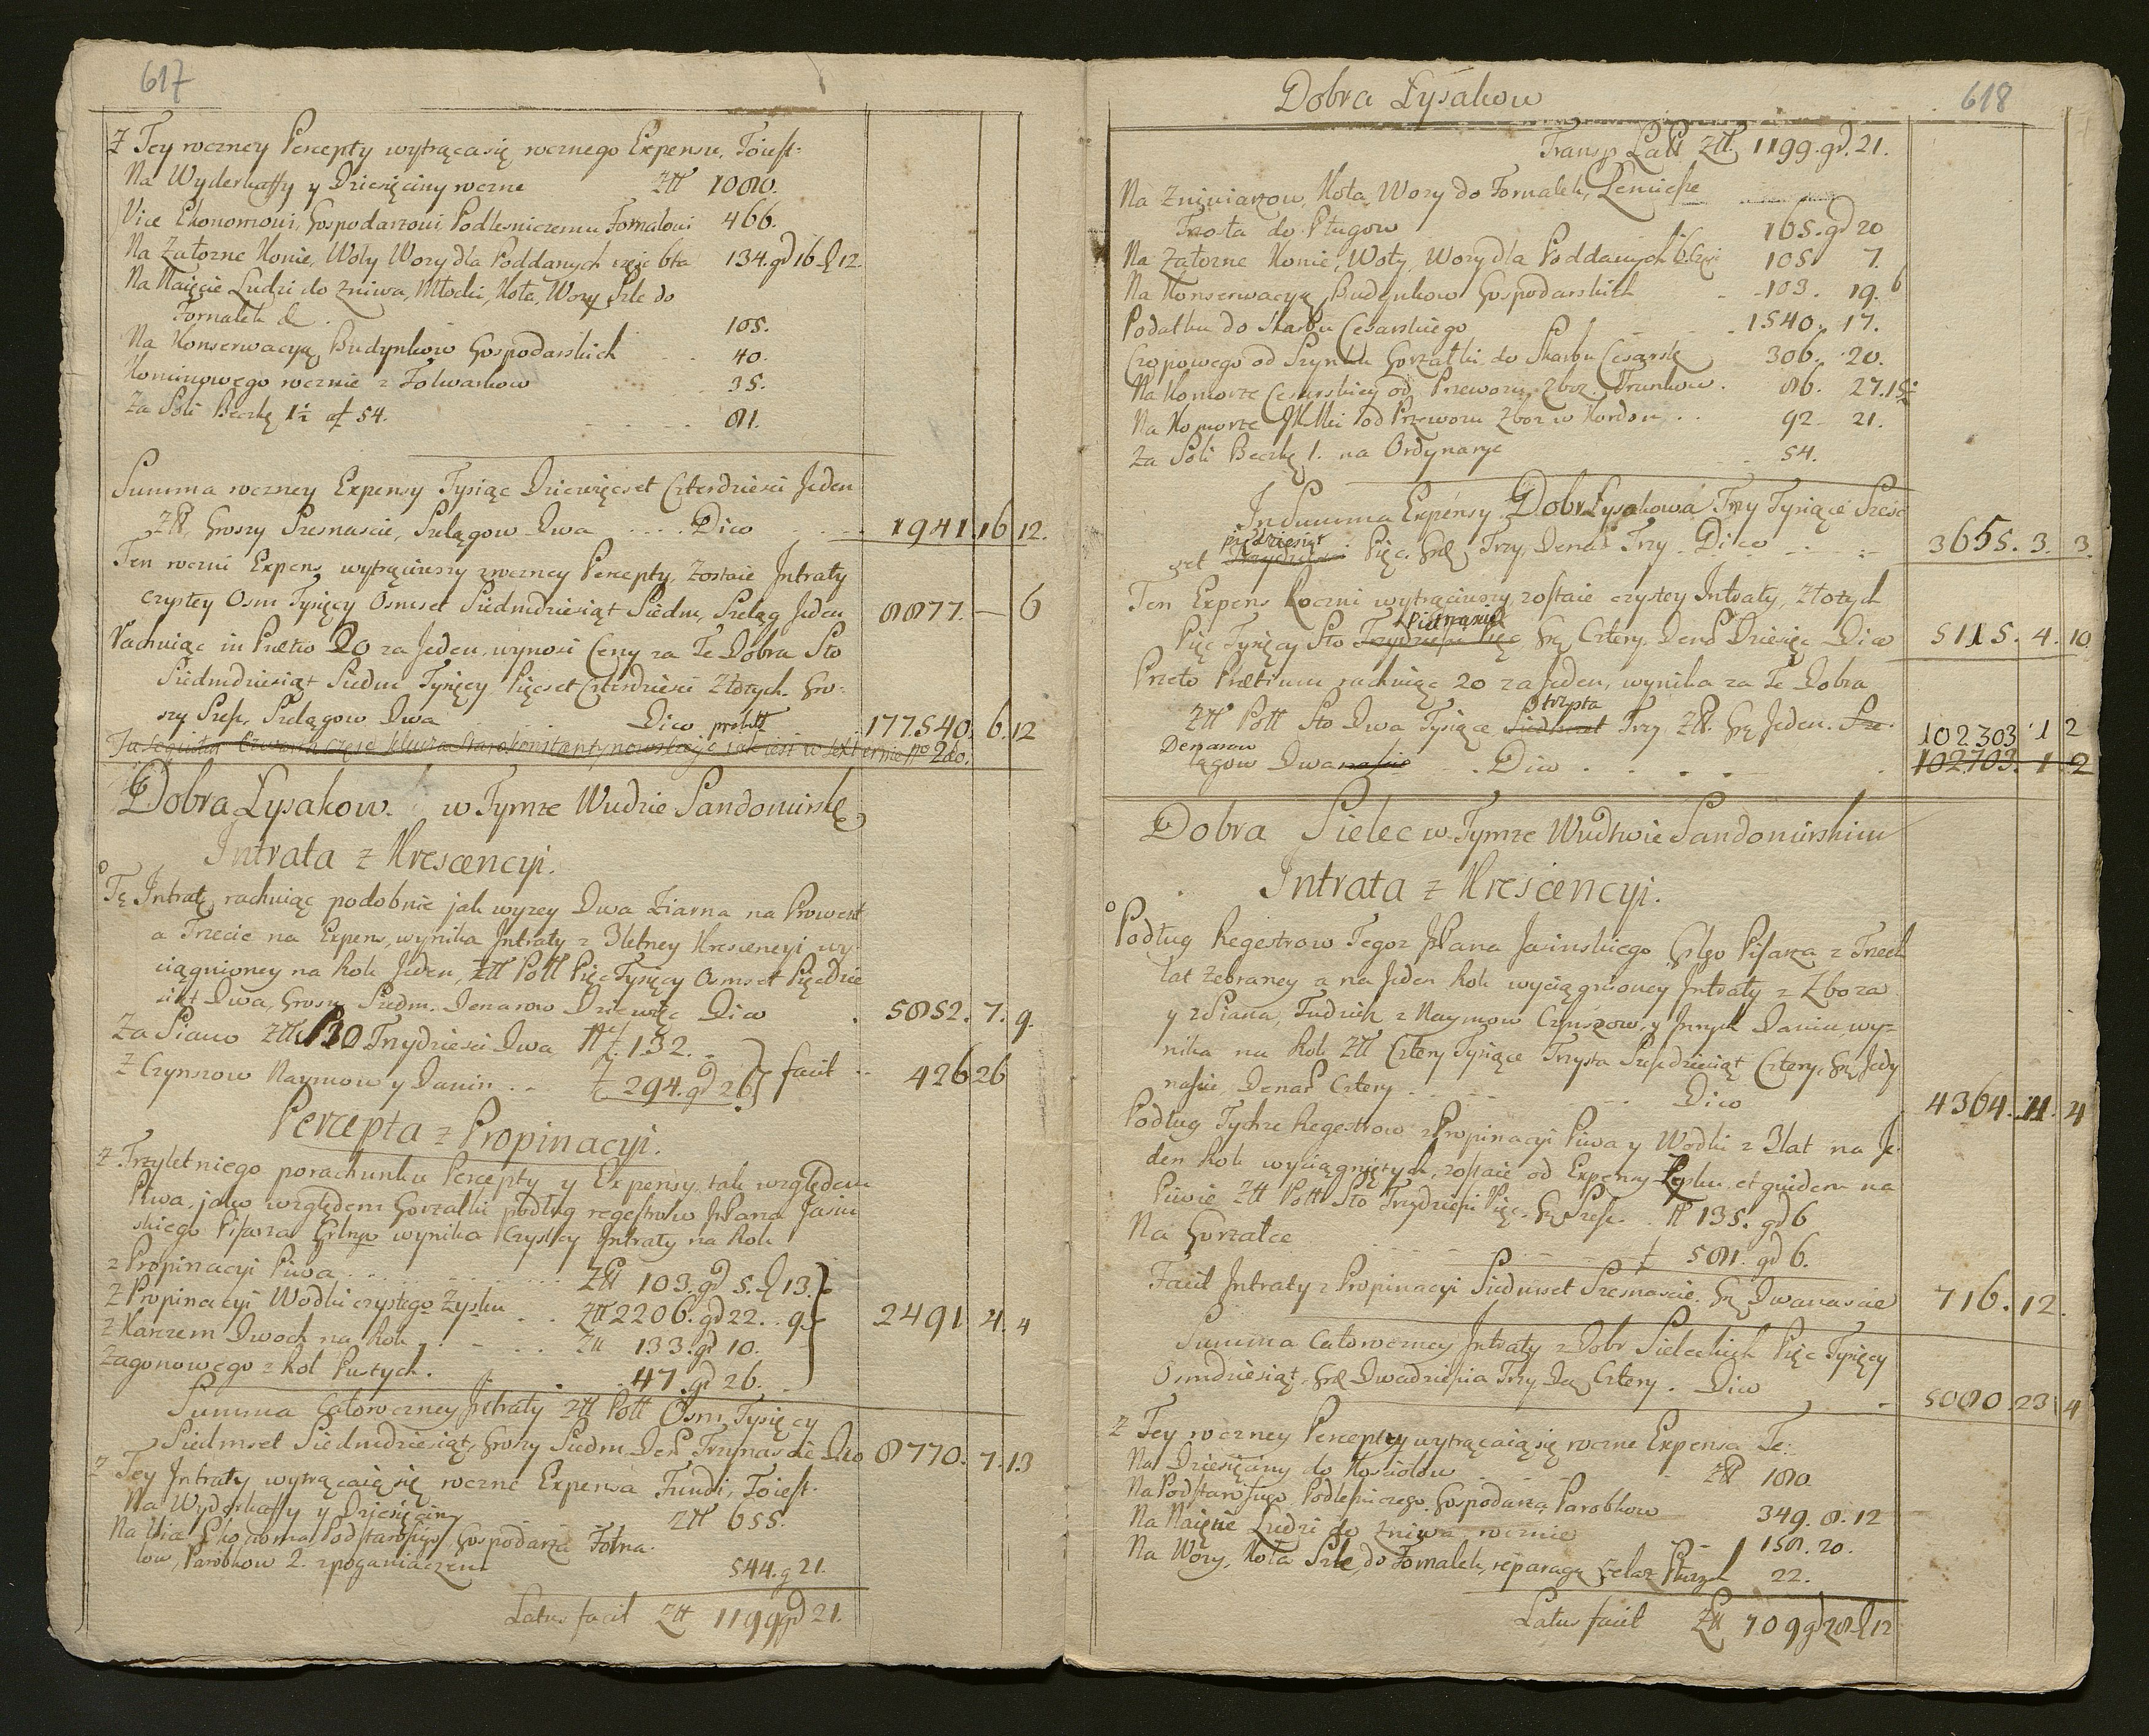 617
Z Tey roczney Percepty wytrąca się rocznego Expensu, Toiest:
Na Wyderkaffy y Dziesięciny roczne Złł 1080.
Vice Ekonomowi, Gospodarzowi, Podlesniczemu, Fornalowi 466.
Na Załozne Konie, Woły Wozy dla Poddanych 134. gd 16. d 12.
Na Naięcie Ludzi do Zniwa, Młocki, Koła, Wozy Szle do
Fornalek &
105.
Na Konserwacyą Budynkow Gospodarskich 40.
Kominowego rocznie z Folwarkow 35.
Za Soli Beczkę 1½ af 54. 81.
Summa roczney Expensy Tysiąc Dziewięcset Czterdziesci Jeden
Złł, Groszy Szesnascie, Szelągow Dwa Dico 1941. 16 12.
Ten roczni Expens wytrąciwszy z roczney Percepty, zostaie Intraty
czystey Osm Tysięcy Osmset Siedmdziesiąt Siedm, Szeląg Jeden 8877. — 6
Rachuiąc in Prætio 20 za Jeden, wynosi Ceny za Te Dobra Sto
Siedmdziesiąt Siedm Tysięcy Pięcset Czterdziesci Złotych Gro:
szy Szesc, Szelągow Dwa Dico 177.540. 6. 12
Dobra Łysakow. w Tymze Wudzie Sandomirskę
Intrata z Krescencyi.
Tę Intratę rachuiąc podobnie jak wyzey Dwa Ziarna na Prowent
a Trzecie na Expens, wynika Intraty z 3letney Krescencyi wy:
ciągnioney na Rok Jeden, Złł Poll Pięc Tysięcy Osmset Pięcdzie
siąt Dwa, Groszy Siedm. Denarow Dziewięc Dico 5852. 7. 9.
Za Siano Złł 130 Trydziesci Dwa 132.
Z Czynszow Naymow y Danin 294. gd 26 facit 426 26
Percepta z Propinacyi.
Z Trzyletniego porachunku Percepty y Expensy, tak względem
Piwa, jako względem Gorzałki podług regestrow JPana Jasin
skiego Pisarza wynika czystey Intraty na Rok
z Propinacyi Piwa Złł 103. gd 5. d 13.
z Propinacyi Wodki czystego Zysku Złł 2206. gd 22. 9. 2491. 4. 4
z Karczem Dwoch na Rok Złł 133. gd 10.
Zagonowego z Rol Pustych. 47 gd 26.
Summa Całoroczney Intraty Złł Poll Osm Tysięcy
Siedmset Siedmdziesiąt, Groszy Siedm Den Trzynascie Dico 8770. 7. 13
Z Tey Intraty wytrącaią się roczne Expensa Fundi, Toiest.
Na Wyderkaffy y Dziesięciny Złł 655.
Na Vice Ekonoma Podstarosciego, Gospodarza Forna.
low, Parobkow 2. z poganiaczem 544. g 21.
Latus facit Złł 1199 gd 21.
Dobra Łysakow 618
Transp Latt Złł 1199. gd. 21.
Na Zniwiarzow, Koła, Wozy do Fornalek, Lemiesze
Trosła do Pługow 165. gd 20
Na Załozne Konie, Woły, Wozy dla Poddanych 105. 7.
Na Konserwacyą Budynkow Gospodarskich 103. 19.
Podatku do Skarbu Cesarskiego 1540. 17.
Czopowego od Szynku Gorzałki do Skarbu Cesarskę 306. 20.
Na Komorze Cesarskiey od Przewozu Zboz. Trunkow. 86. 27. 15
Na Komorze od Przewozu Zboz w Kordon 92. 21.
Za Soli Beczkę 1. na Ordynaryę 54.
In Summa Expensy Dobr Łysakowa Trzy Tysiące Szesc
set pięcdziesiąt Pięc. Trzy, Denar Trzy Dico 3655. 3. 3.
Ten Expens Roczni wytrąciwszy zostaie czystey Intraty, Złotych
Pięc Tysięcy Sto Piętnascie Cztery. Den Dziesięc Dico 5115. 4. 10
Przeto Prætium rachuiąc 20 za Jeden, wynika za Te Dobra
Złł Poll Sto Dwa Tysiące trzysta Trzy Złł. Jeden. 102303 1 2
Denarow Dwa Dico 102703. 1. 2
Dobra Sielec w Tymze Wudztwie Sandomirskim
Intrata z Krescencyi.
Podług Regestrow Tegoz JPana Jasinskiego Pisarza z Trzech
lat zebraney a na Jeden Rok wyciągnioney Intraty z Zboza
y z Siana, Tudzież z Naymow Czynszow, y Innych Danin, wy:
nika na Rok Złł Cztery Tysiące Trzysta Szescdziesiąt Cztery, Jedy
nascie, Denar Cztery Dico 4364. 11. 4
Podług Tychze Regestrow z Propinacyi Piwa y Wodki z 3 lat na Je
den Rok wyciągniętych, zostaie od Expensy Zysku, et quidem na
Piwie Złł Poll Sto Trzydziesci Pięc Szesc. 135. gd 6
Na Gorzałce 581. gd 6.
Facit Intraty z Propinacyi Siedmset Szesnascie Dwanascie 716. 12.
Summa Całoroczney Intraty z Dobr Sieleckich Pięc Tysięcy
Osmdziesiąt Dwadziescia Trzy Cztery. Dico 5080 23 4
Z Tey roczney Percepty wytrącaią się roczne Expensa Te:
Na Dziesięciny do Kosciołow Złł 180
Na Podstarosciego, Podlesniczego, Gospodarza, Parobkow 349. 8. 12
Na Naięcie Ludzi do Zniwa rocznie 158. 20.
Na Wozy, Koła Szle, do Fornalek, reparacyę zelaz 22.
Latus facit Złł 709 gd 28 d 12